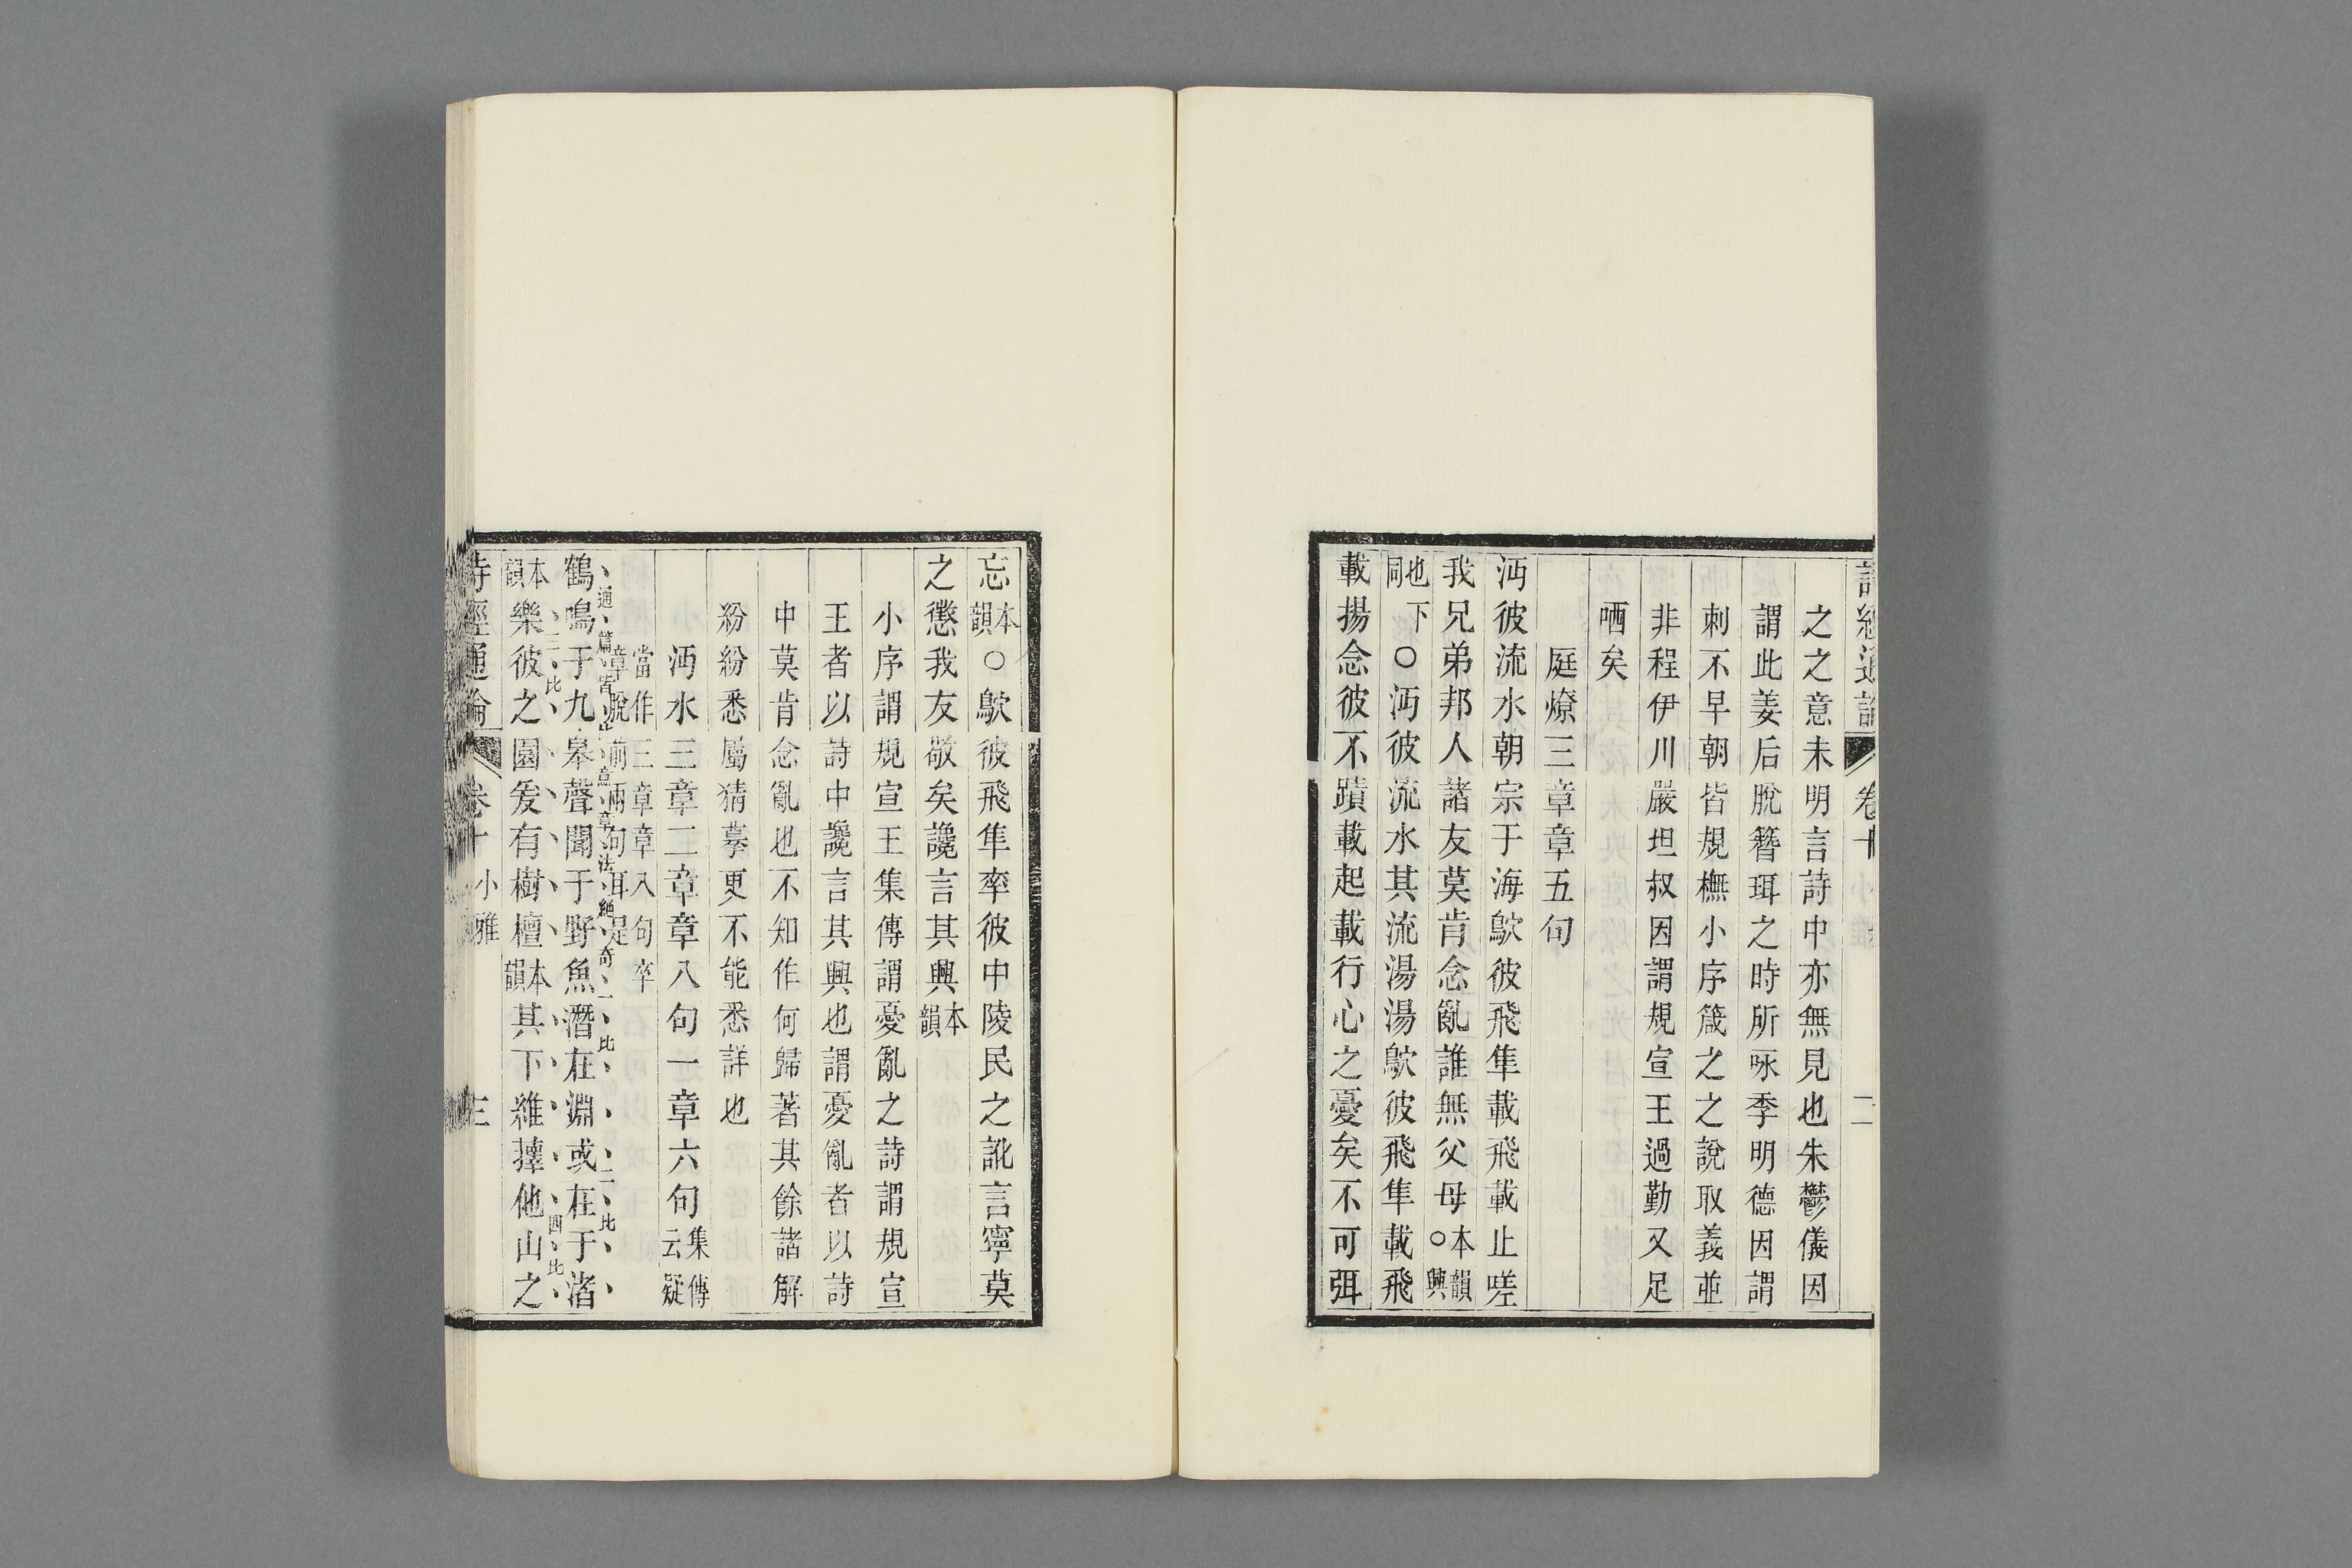 詩經通論 卷十 小雅 二
之之意未明言詩中亦無見也朱鬱儀因
謂此姜后脫簪珥之時所咏季明德因謂
刺不早朝皆規橅小序箴之之說取義並
非程伊川嚴坦叔因謂規宣王過勤又足
哂矣
庭燎三章章五句
沔彼流水朝宗于海鴥彼飛隼載飛載止嗟
我兄弟邦人諸友莫肯念亂誰無父母本韻○興
也下同○沔彼流水其流湯湯鴥彼飛隼載飛
載揚念彼不蹟載起載行心之憂矣不可弭
忘本韻○鴥彼飛隼率彼中陵民之訛言寧莫
之懲我友敬矣讒言其興本韻
小序謂規宣王集傳謂憂亂之詩謂規宣
王者以詩中讒言其興也謂憂亂者以詩
中莫肯念亂也不知作何歸著其餘諸解
紛紛悉屬猜摹更不能悉詳也
沔水三章二章章八句一章六句集傳云疑
當作三章章八句卒章脫前兩句耳是
通篇皆比意章法絕奇 一比 二比
鶴鳴于九皋聲聞于野魚潛在淵或在于渚
三比 四比
本韻樂彼之園爰有樹檀本韻其下維蘀他山之
詩經通論 卷十 小雅 三